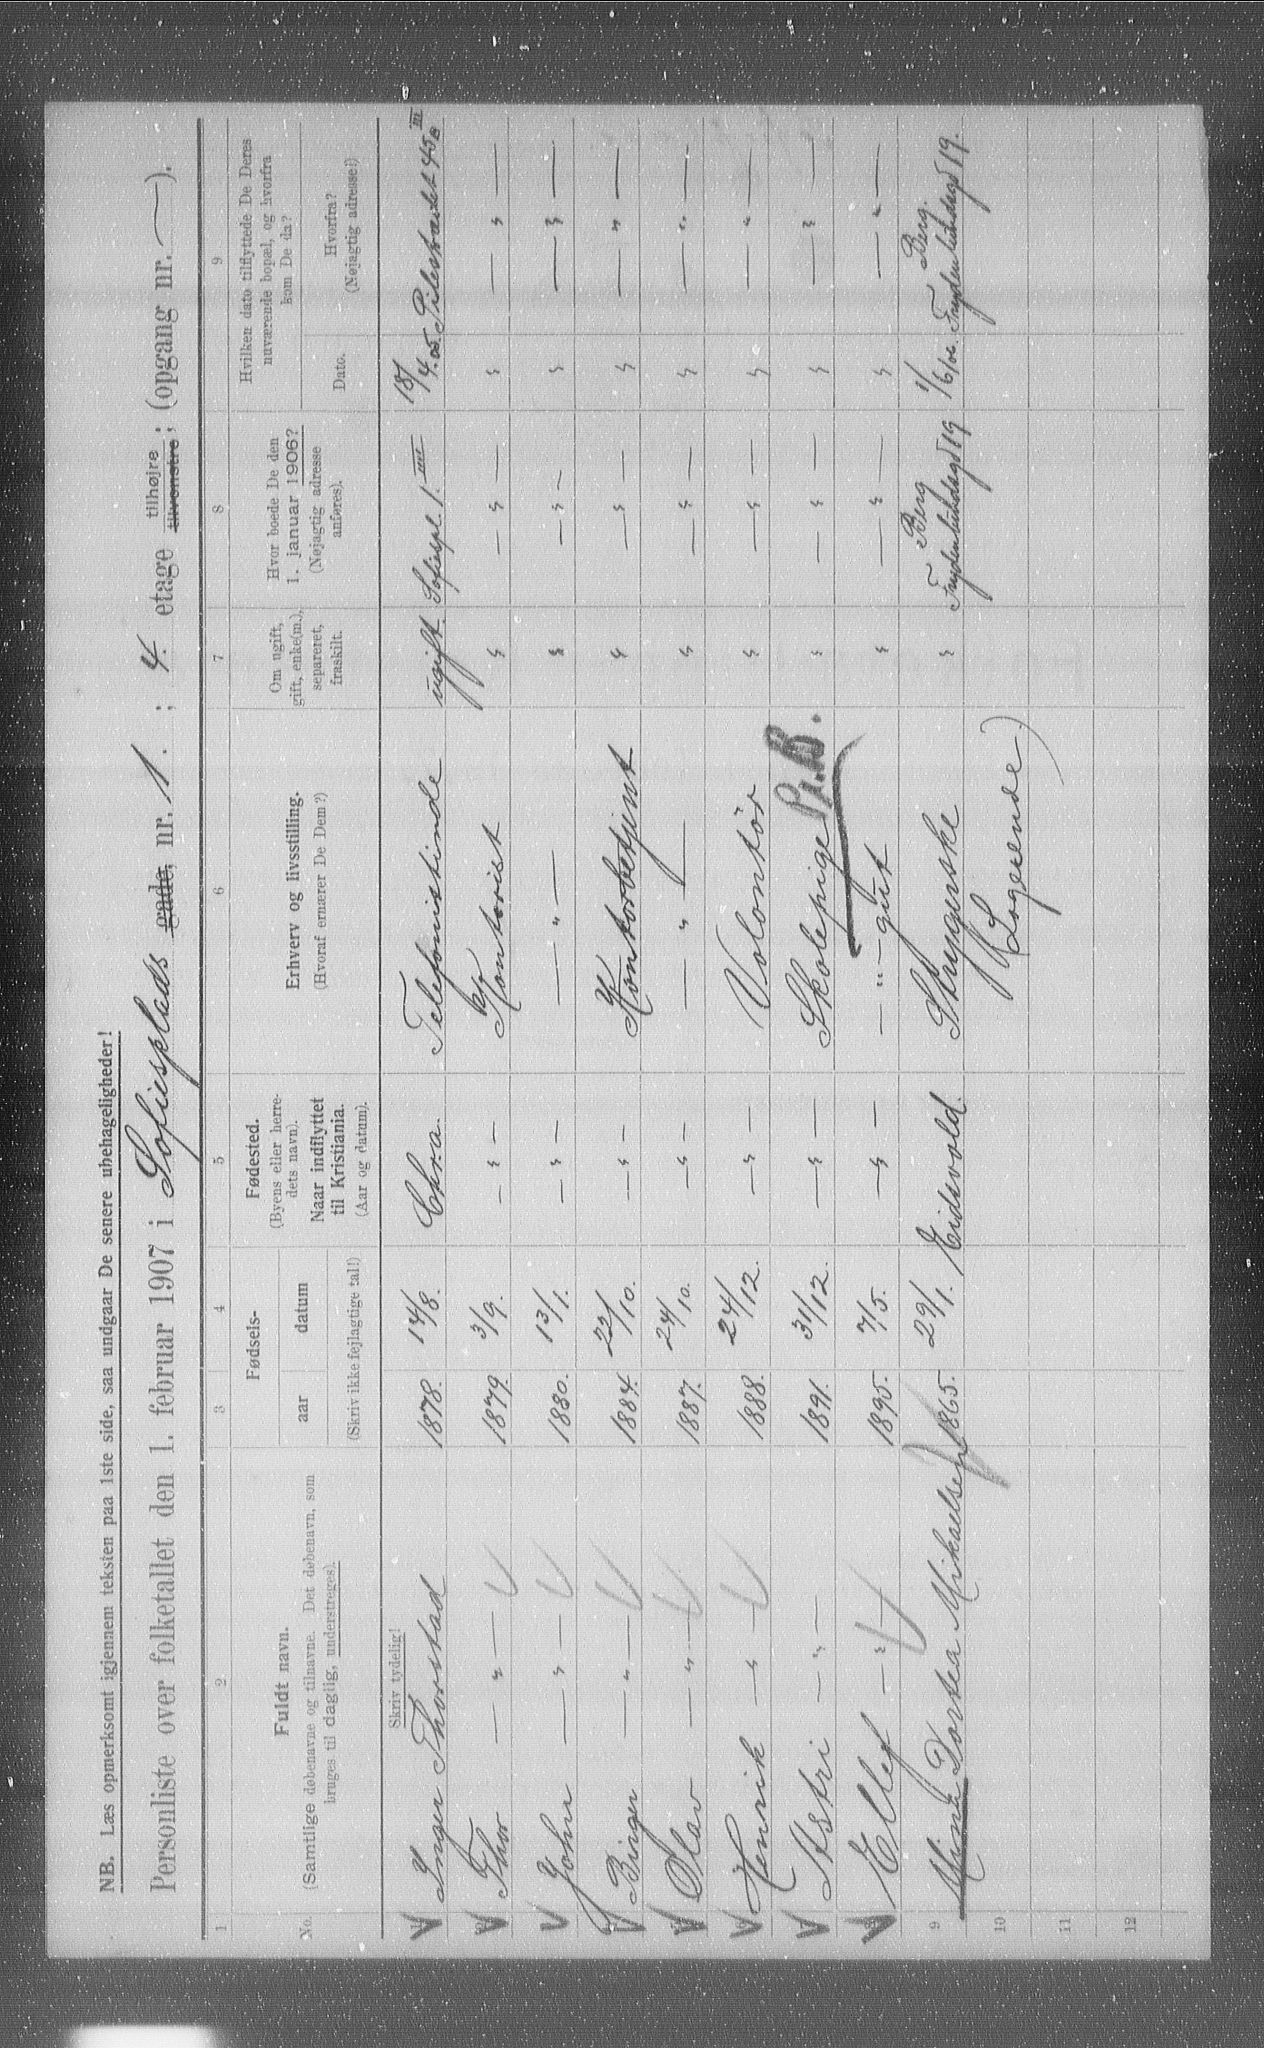 NB. Læs opmerksomt igjennem teksten paa 1ste side, saa undgaar De senere ubehageligheder!
Personliste over folketallet den 1. februar 1907 i Sofiesplads gade, nr. 1. ; 4. etage tilhøjre tilvenstre; (opgang nr. —).
1 2 3 4 5 6 7 8 9
No.
Fuldt navn.
(Samtlige døbenavne og tilnavne. Det døbenavn, som
bruges til daglig, understreges).
Fødsels-
aar datum
(Skriv ikke fejlagtige tal!)
Fødested.
(Byens eller herre-
dets navn).
Naar indflyttet
til Kristiania.
(Aar og datum).
Erhverv og livsstilling.
(Hvoraf ernærer De Dem?)
Om ugift,
gift, enke(m.),
separeret,
fraskilt.
Hvor boede De den
1. januar 1906?
(Nøjagtig adresse
anføres).
Hvilken dato tilflyttede De Deres
nuværende bopæl, og hvorfra
kom De da?
Dato.
Hvorfra?
(Nøjagtig adresse!)
Skriv tydelig!
Inger Thorstad 1878. 14/8. Chra. Telefonistinde ugift. Sofiespl. 1. IIII 18/4.05. Pilestrædet 45B III
Thor — „ — 1879. 3/9. — „ — Kontorist „ — „ — „ — „ —
John — „ — 1880. 13/1. — „ — — „ — „ — „ — „ — „ —
Birger — „ — 1884. 22/10. — „ — Kontorbetjent „ — „ — „ — „ —
Olav — „ — 1887. 24/10. — „ — — „ — „ — „ — „ — „ —
Henrik — „ — 1888. 24/12. — „ — Volontör „ — „ — „ — „ —
Astri — „ — 1891. 31/12. — „ — Skolepige „ — „ — „ — „ —
Ellef — „ 1895. 7/5. — „ — — „ — gut „ — „ — „ — „ —
9 Mina Dortea Mikaelsen 1865. 29/1. Eidsvold. Strygerske „ Berg Frydenlundsgd 19 1/6/06. Berg. Frydenlundsgd 19.
10 (Logerende)
11
12